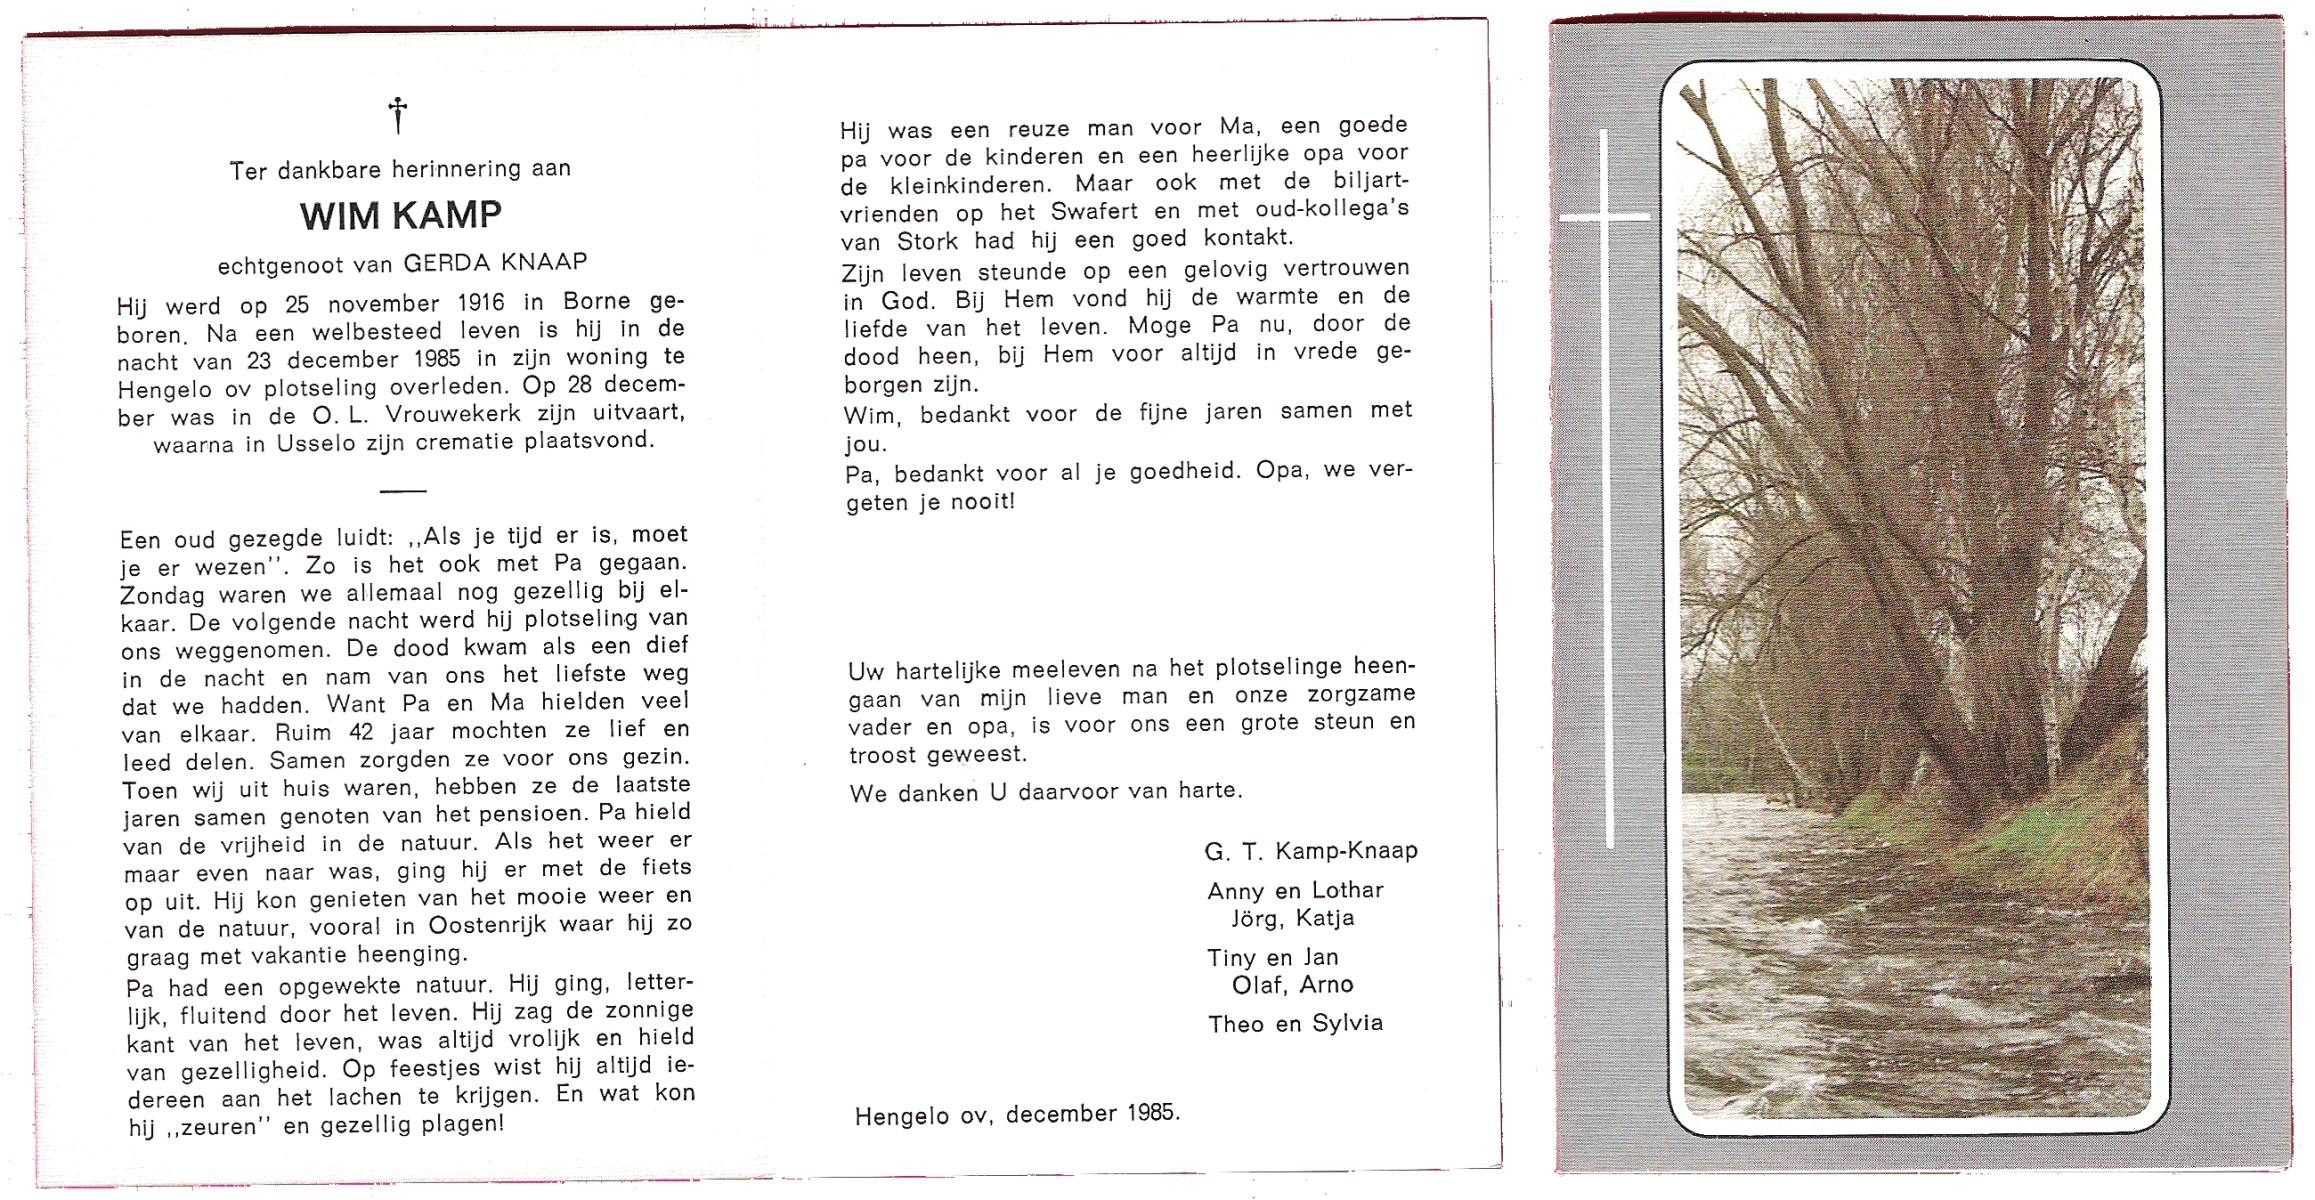 †
Ter dankbare herinnering aan
WIM KAMP
echtgenoot van GERDA KNAAP
Hij werd op 25 november 1916 in Borne ge-
boren. Na een welbesteed leven is hij in de
nacht van 23 december 1985 in zijn woning te
Hengelo ov plotseling overleden. Op 28 decem-
ber was in de O. L. Vrouwekerk zijn uitvaart,
waarna in Usselo zijn crematie plaatsvond.
Een oud gezegde luidt: ,,Als je tijd er is, moet
je er wezen''. Zo is het ook met Pa gegaan.
Zondag waren we allemaal nog gezellig bij el-
kaar. De volgende nacht werd hij plotseling van
ons weggenomen. De dood kwam als een dief
in de nacht en nam van ons het liefste weg
dat we hadden. Want Pa en Ma hielden veel
van elkaar. Ruim 42 jaar mochten ze lief en
leed delen. Samen zorgden ze voor ons gezin.
Toen wij uit huis waren, hebben ze de laatste
jaren samen genoten van het pensioen. Pa hield
van de vrijheid in de natuur. Als het weer er
maar even naar was, ging hij er met de fiets
op uit. Hij kon genieten van het mooie weer en
van de natuur, vooral in Oostenrijk waar hij zo
graag met vakantie heenging.
Pa had een opgewekte natuur. Hij ging, letter-
lijk, fluitend door het leven. Hij zag de zonnige
kant van het leven, was altijd vrolijk en hield
van gezelligheid. Op feestjes wist hij altijd ie-
dereen aan het lachen te krijgen. En wat kon
hij ,,zeuren'' en gezellig plagen!
Hij was een reuze man voor Ma, een goede
pa voor de kinderen en een heerlijke opa voor
de kleinkinderen. Maar ook met de biljart-
vrienden op het Swafert en met oud-kollega's
van Stork had hij een goed kontakt.
Zijn leven steunde op een gelovig vertrouwen
in God. Bij Hem vond hij de warmte en de
liefde van het leven. Moge Pa nu, door de
dood heen, bij Hem voor altijd in vrede ge-
borgen zijn.
Wim, bedankt voor de fijne jaren samen met
jou.
Pa, bedankt voor al je goedheid. Opa, we ver-
geten je nooit!
Uw hartelijke meeleven na het plotselinge heen-
gaan van mijn lieve man en onze zorgzame
vader en opa, is voor ons een grote steun en
troost geweest.
We danken U daarvoor van harte.
G. T. Kamp-Knaap
Anny en Lothar
Jörg, Katja
Tiny en Jan
Olaf, Arno
Theo en Sylvia
Hengelo ov, december 1985.